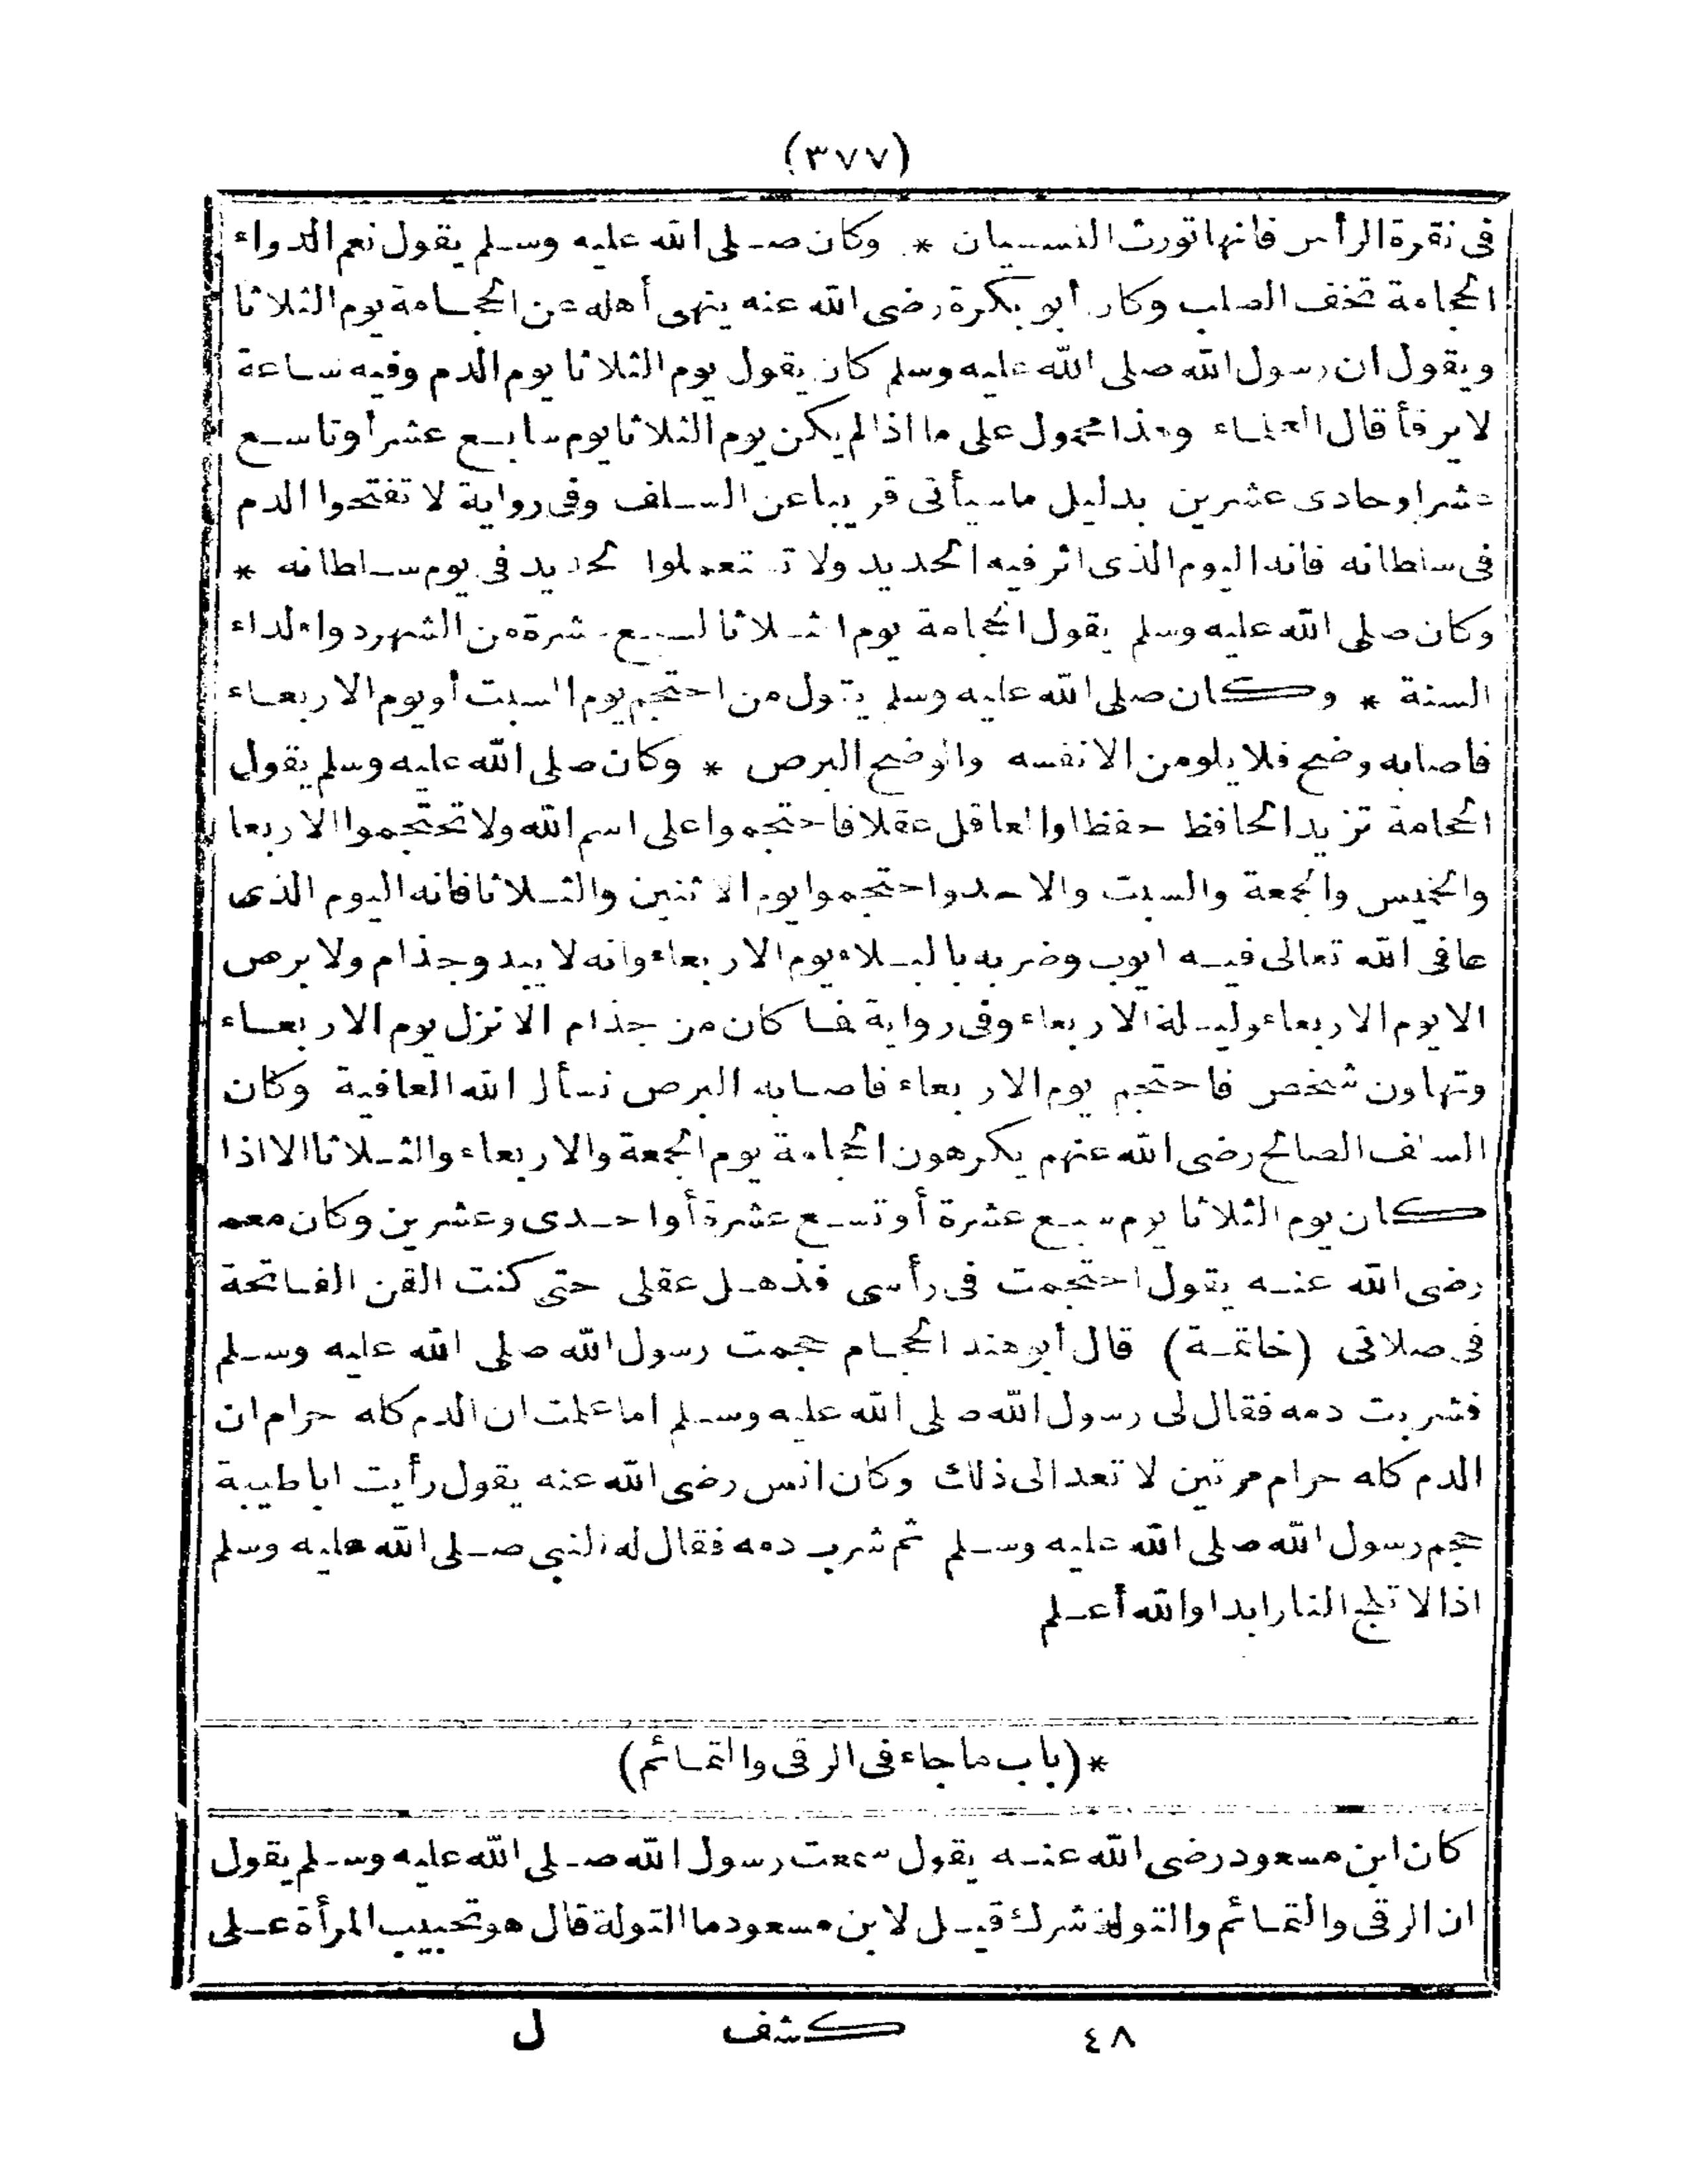 (٣٧٧)
فى نقرة الرأس فانها تورث النسيان * وكان صلى الله عليه وسلم يقول نعم الدواء
الحجامة تخفف الصلب وكان أبو بكرة رضى الله عنه ينهى أهله عن الحجامة يوم الثلاثا
ويقول ان رسول الله صلى الله عليه وسلم كان يقول يوم الثلاثا يوم الدم وفيه ساعة
لا يرقأ قال العلماء وهذا محمول على ما اذا لم يكن يوم الثلاثا يوم سابع عشر أو تاسع
عشر او حادى عشرين بدليل ما سيأتى قريبا عن السلف وفى رواية لا تفتحوا الدم
فى سلطانه فانه اليوم الذى اثر فيه الحديد ولا تستعملوا الحديد فى يوم سلطانه *
وكان صلى الله عليه وسلم يقول الحجامة يوم الثلاثا لسبع عشرة من الشهر دواء لداء
السنة * وكان صلى الله عليه وسلم يقول من احتجم يوم السبت أو يوم الاربعاء
فاصابه وضح فلا يلومن الا نفسه والوضح البرص * وكان صلى الله عليه وسلم يقول
الحجامة تزيد الحافظ حفظا والعاقل عقلا فاحتجموا على اسم الله ولا تحتجموا الاربعا
والخميس والجمعة والسبت والاحد واحتجموا يوم الاثنين والثلاثا فانه اليوم الذى
عافى الله تعالى فيه ايوب وضربه بالبلاء يوم الاربعاء وانه لا يبدو جذام ولا برص
الا يوم الاربعاء وليلة الاربعاء وفى رواية فما كان من جذام الا نزل يوم الاربعاء
وتهاون شخص فاحتجم يوم الاربعاء فاصابه البرص نسأل الله العافية وكان
السلف الصالح رضى الله عنهم يكرهون الحجامة يوم الجمعة والاربعاء والثلاثا الا اذا
كان يوم الثلاثا يوم سبع عشرة أو تسع عشرة أو احدى وعشرين وكان معمر
رضى الله عنه يقول احتجمت فى رأسى فذهل عقلى حتى كنت القن الفاتحة
فى صلاتى (خاتمة) قال أبو هند الحجام حجمت رسول الله صلى الله عليه وسلم
فشربت دمه فقال لى رسول الله صلى الله عليه وسلم اما علمت ان الدم كله حرام ان
الدم كله حرام مرتين لا تعد الى ذلك وكان انس رضى الله عنه يقول رأيت ابا طيبة
حجم رسول الله صلى الله عليه وسلم ثم شرب دمه فقال له النبى صلى الله عليه وسلم
اذا لا تلج النار ابدا والله أعلم
*(باب ما جاء فى الرقى والتمائم)
كان ابن مسعود رضى الله عنه يقول سمعت رسول الله صلى الله عليه وسلم يقول
ان الرقى والتمائم والتولة شرك قيل لابن مسعود ما التولة قال هو تحبيب المرأة على
٤٨ كشف ل